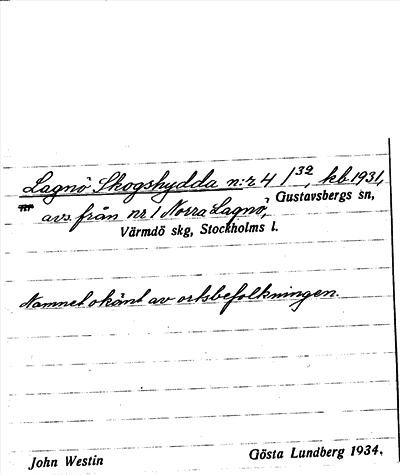 Lagnö Skogshydda n:r 4/32, kb 1931,
avs. från nr 1 Norra Lagnö, Gustavsbergs sn,
Värmdö skg, Stockholms l.
Namnet okänt av ortsbefolkningen.
John Westin Gösta Lundberg 1934.